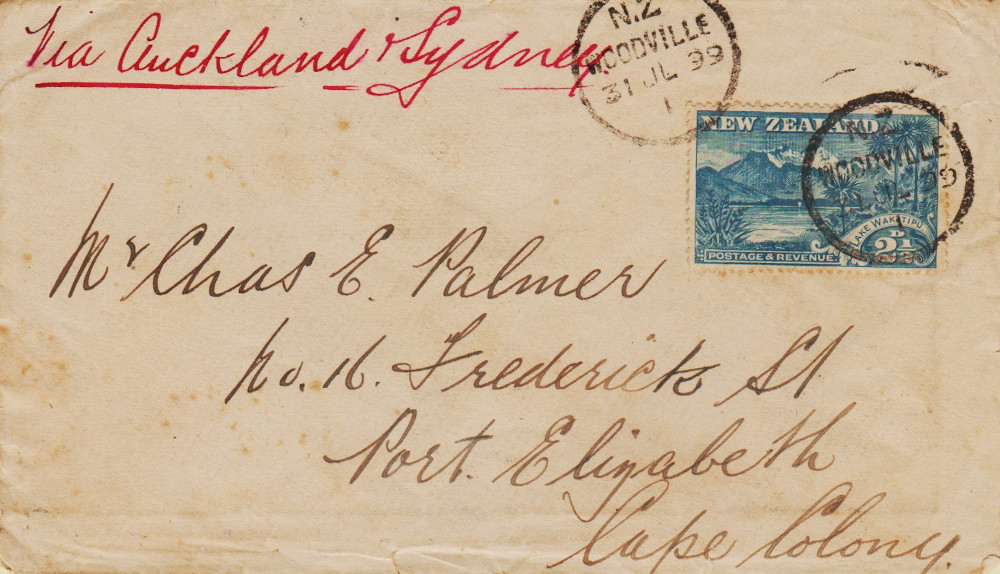 Via Auckland & Sydney
N.Z
WOODVILLE
31 JL 99
1
NEW ZEALAND
N.Z
WOODVILLE
31 JL 99
1
LAKE WAKATIPU
2½D
POSTAGE & REVENUE.
Mr Chas E. Palmer
No. 16. Frederick St
Port. Elizabeth
Cape Colony.